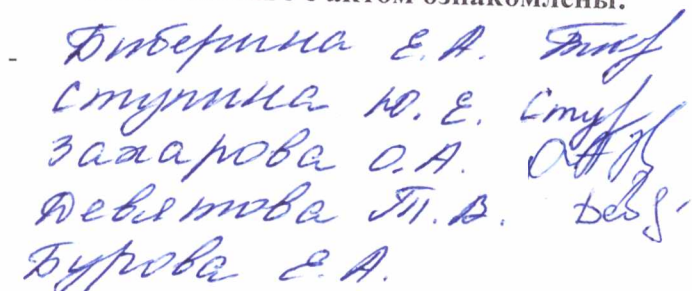 актом ознакомлены:
- Биберина Е. А.
Ступина Ю. Е. Сту
Захарова О. А.
Девятова Т. В. Дев
Бурова Е. А.